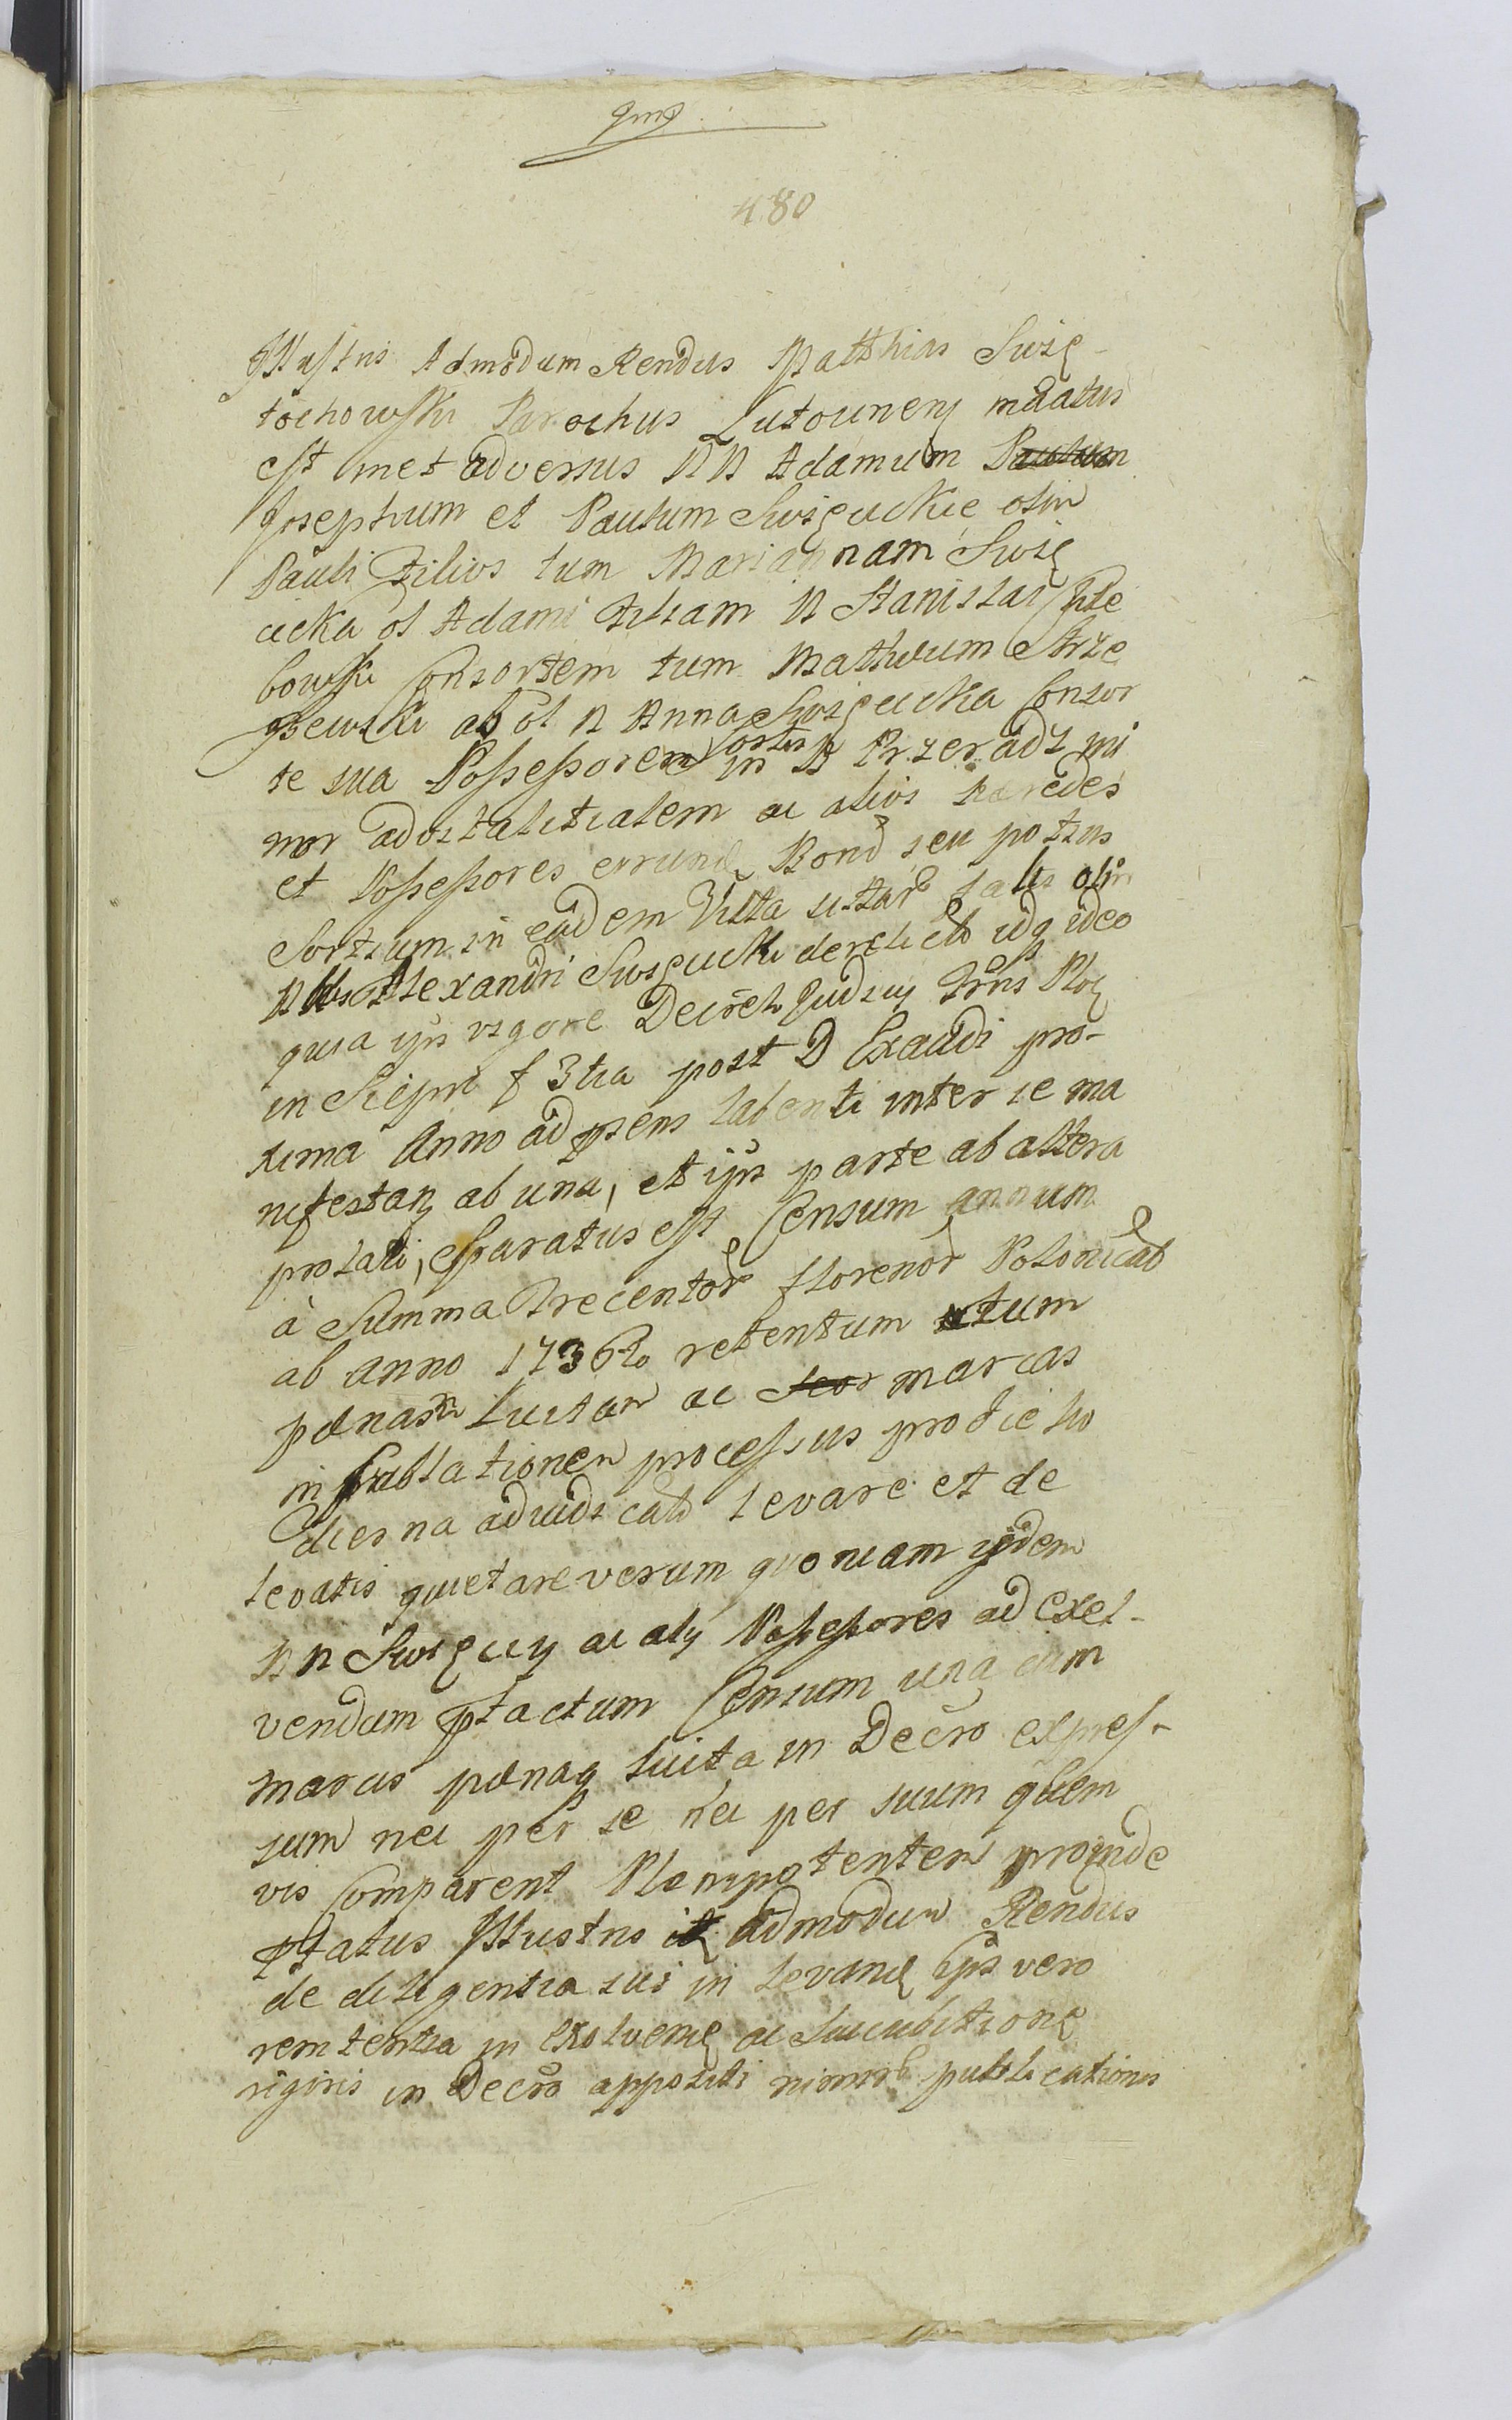 480
Illustris Admodum Rendus Matthias Swię-
tochowski Parochus Lutounens mdatus
est met adversus NN Adamum Paulum
Josephum et Paulum Swięcickie olim
Pauli Filios tum Mariannam Swię
cicka ol Adami Filiam N Stanislai Chle
bowski Consortem tum Matheum Strze
szewski ab ol N Anna Swięcicka Consor
te sua Possessorem Sortis in B Przeradz mi
nor advitalitialem ac alios haeredes
et Possessores eorund Bonor seu potius
Sortium in eadem Villa sitar talis olim
Nblis Alexandri Swięcicki derelict idq ideo
quia ipsi vigore Decreti Judicij Trns Ploc
in Sierpc f 3tia post D Exaudi pro-
xima Anno ad psens labenti inter se ma
nifestan ab una, et ipsi parte ab altera
prolati, paratus est Censum annum
à Summa Trecentor florenor Polonical
ab Anno 1736to retentum tum
paenam luitam ac marcas
in sublationem processus pro die ho
dierna adiudicat levare et de
levatis quietare verum quoniam ijdem
NN Swięcicy ac alij Possessores ad exol-
vendum ptactum Censum una cum
marcis paenaq luita in Decro expres-
sum nec per se nec per suum quem
vis comparent Plenipotentem proinde
ptatus Illustris Admodum Rendus
de diligentia sui in levand ipsi vero
remtentia in exolvend ac succubitione
rigoris in Decro appositi nimirum publicationis